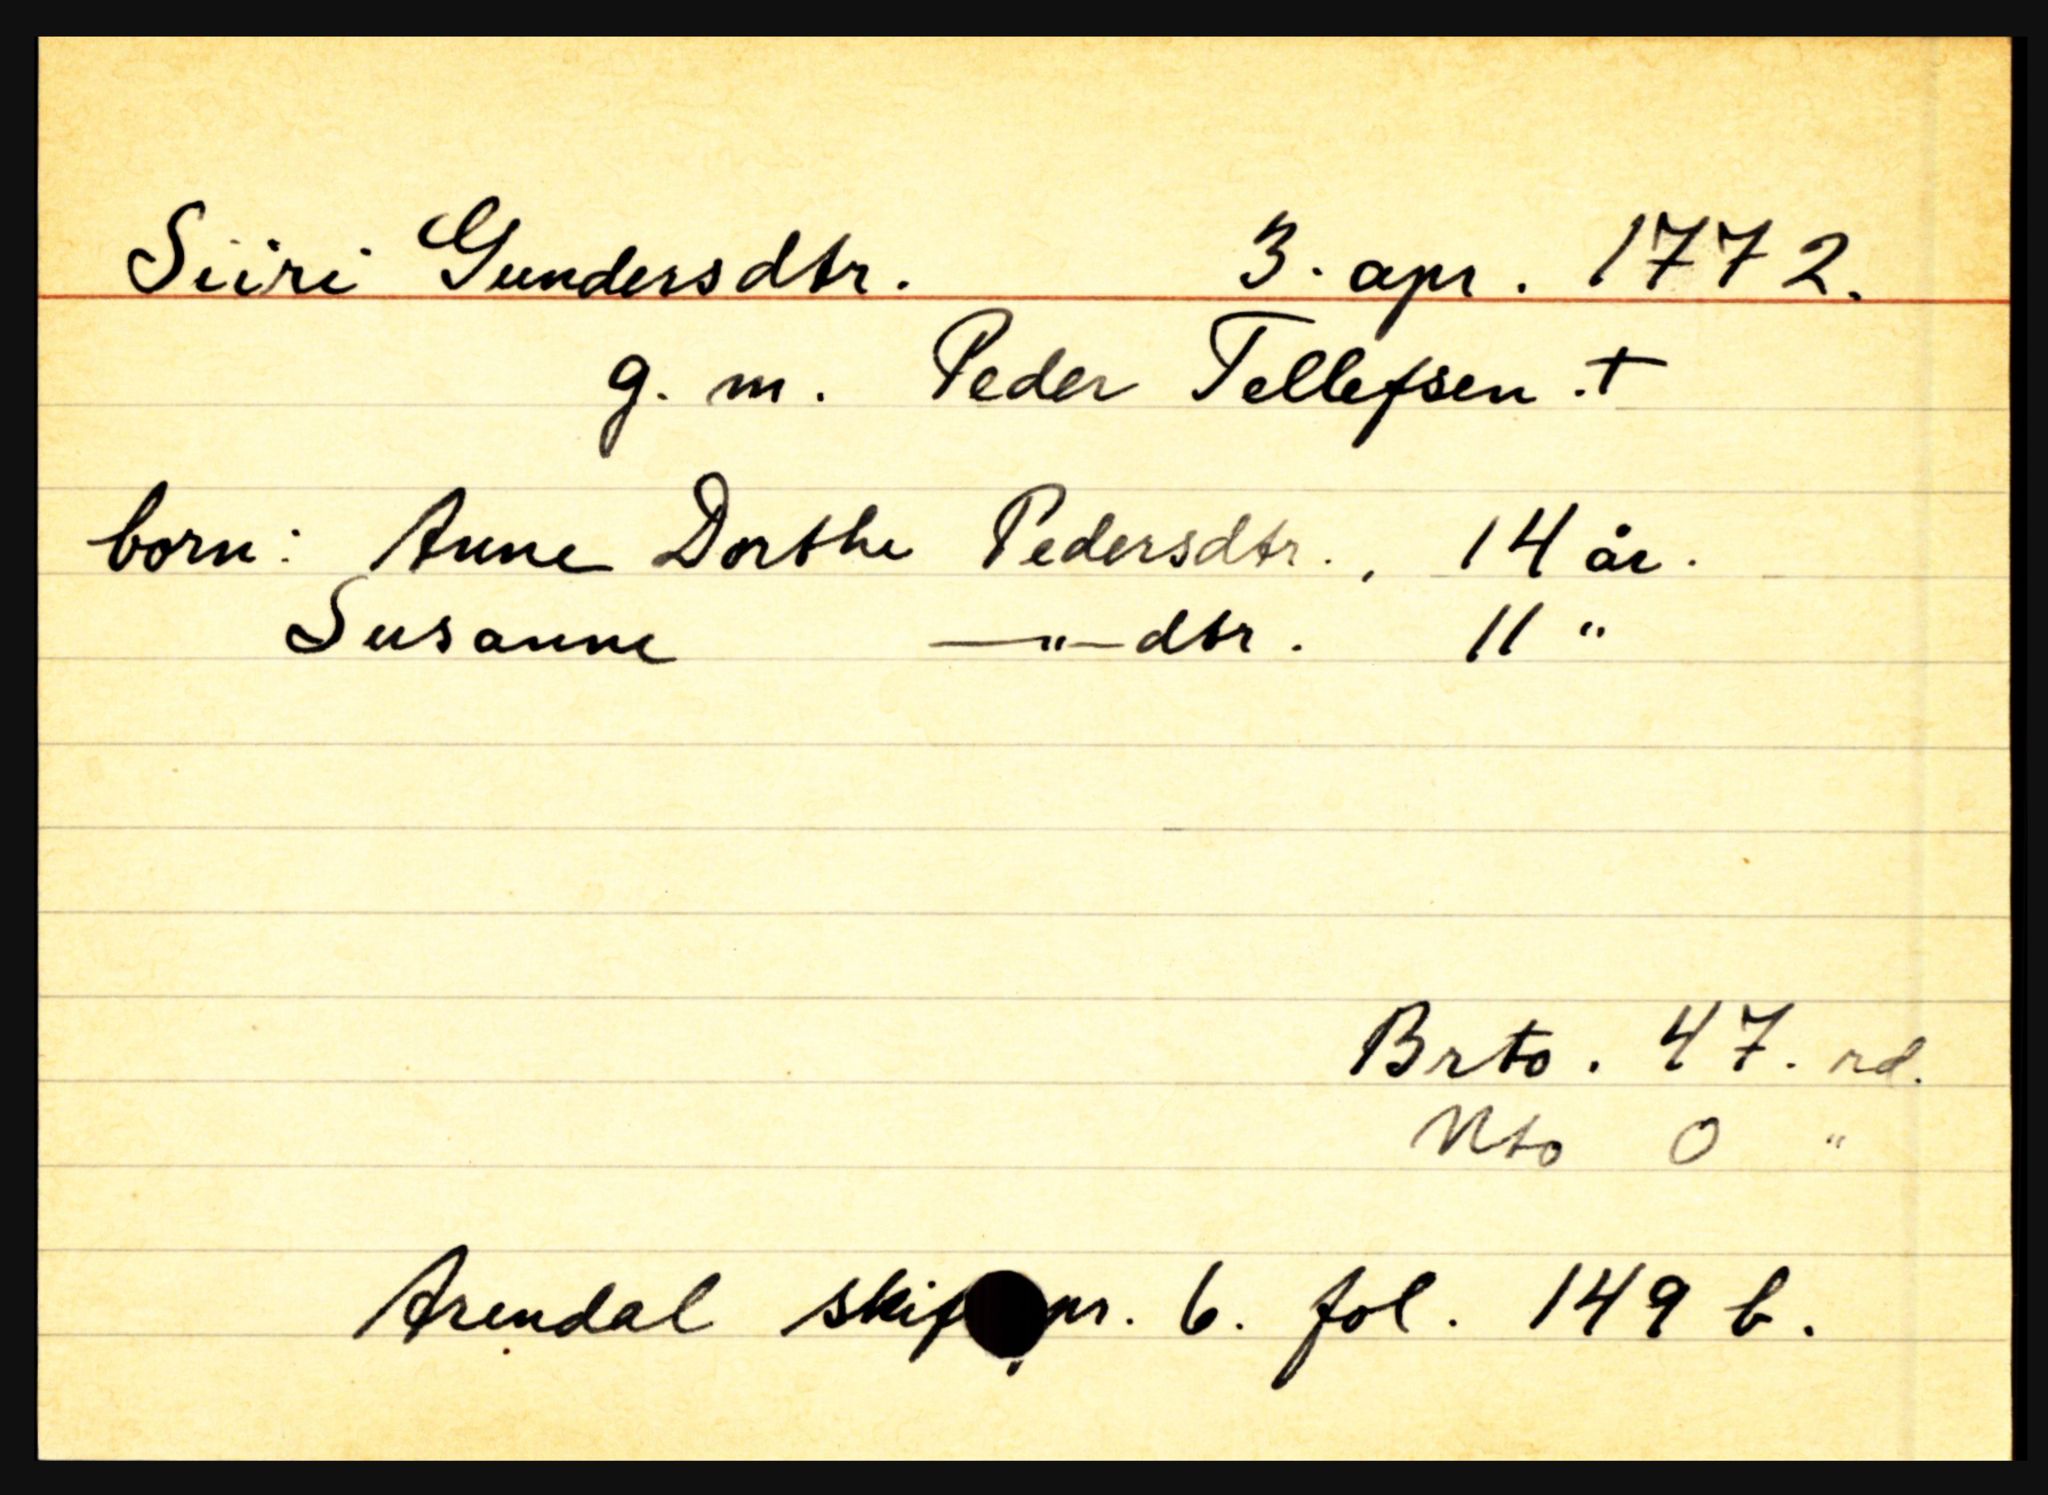 Siiri Gundersdtr. 3. apr. 1772.
g. m. Peder Tellefsen .+
born: Anne Dorthe Pedersdtr., 14 år.
Susanne —"— dtr. 11 "
Brto. 47. rd.
Nto 0 "
Arendal skif pr. 6. fol. 149 b.